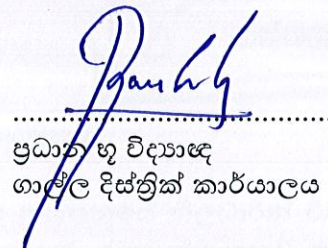 ..............................
ප්‍රධාන භූ විද්‍යාඥ
ගාල්ල දිස්ත්‍රික් කාර්යාලය